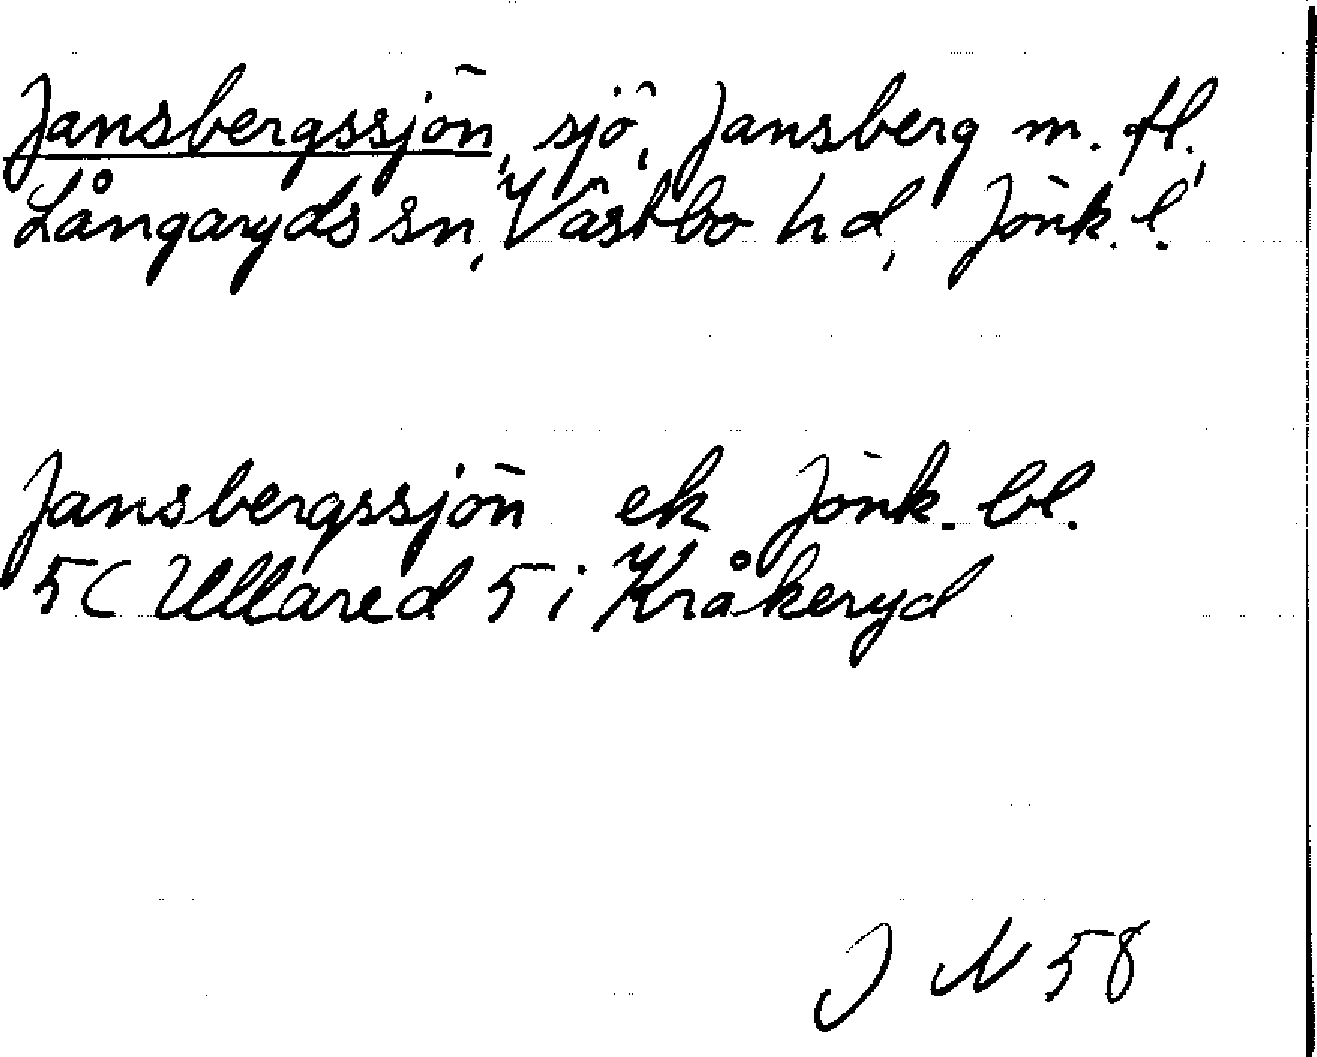 Jansbergssjön, sjö, Jansberg m. fl.,
Långaryds sn, Västbo hd, Jönk. l.
Jansbergssjön ek Jönk. bl.
5C Ullared 5 i Kråkeryd
J N 58